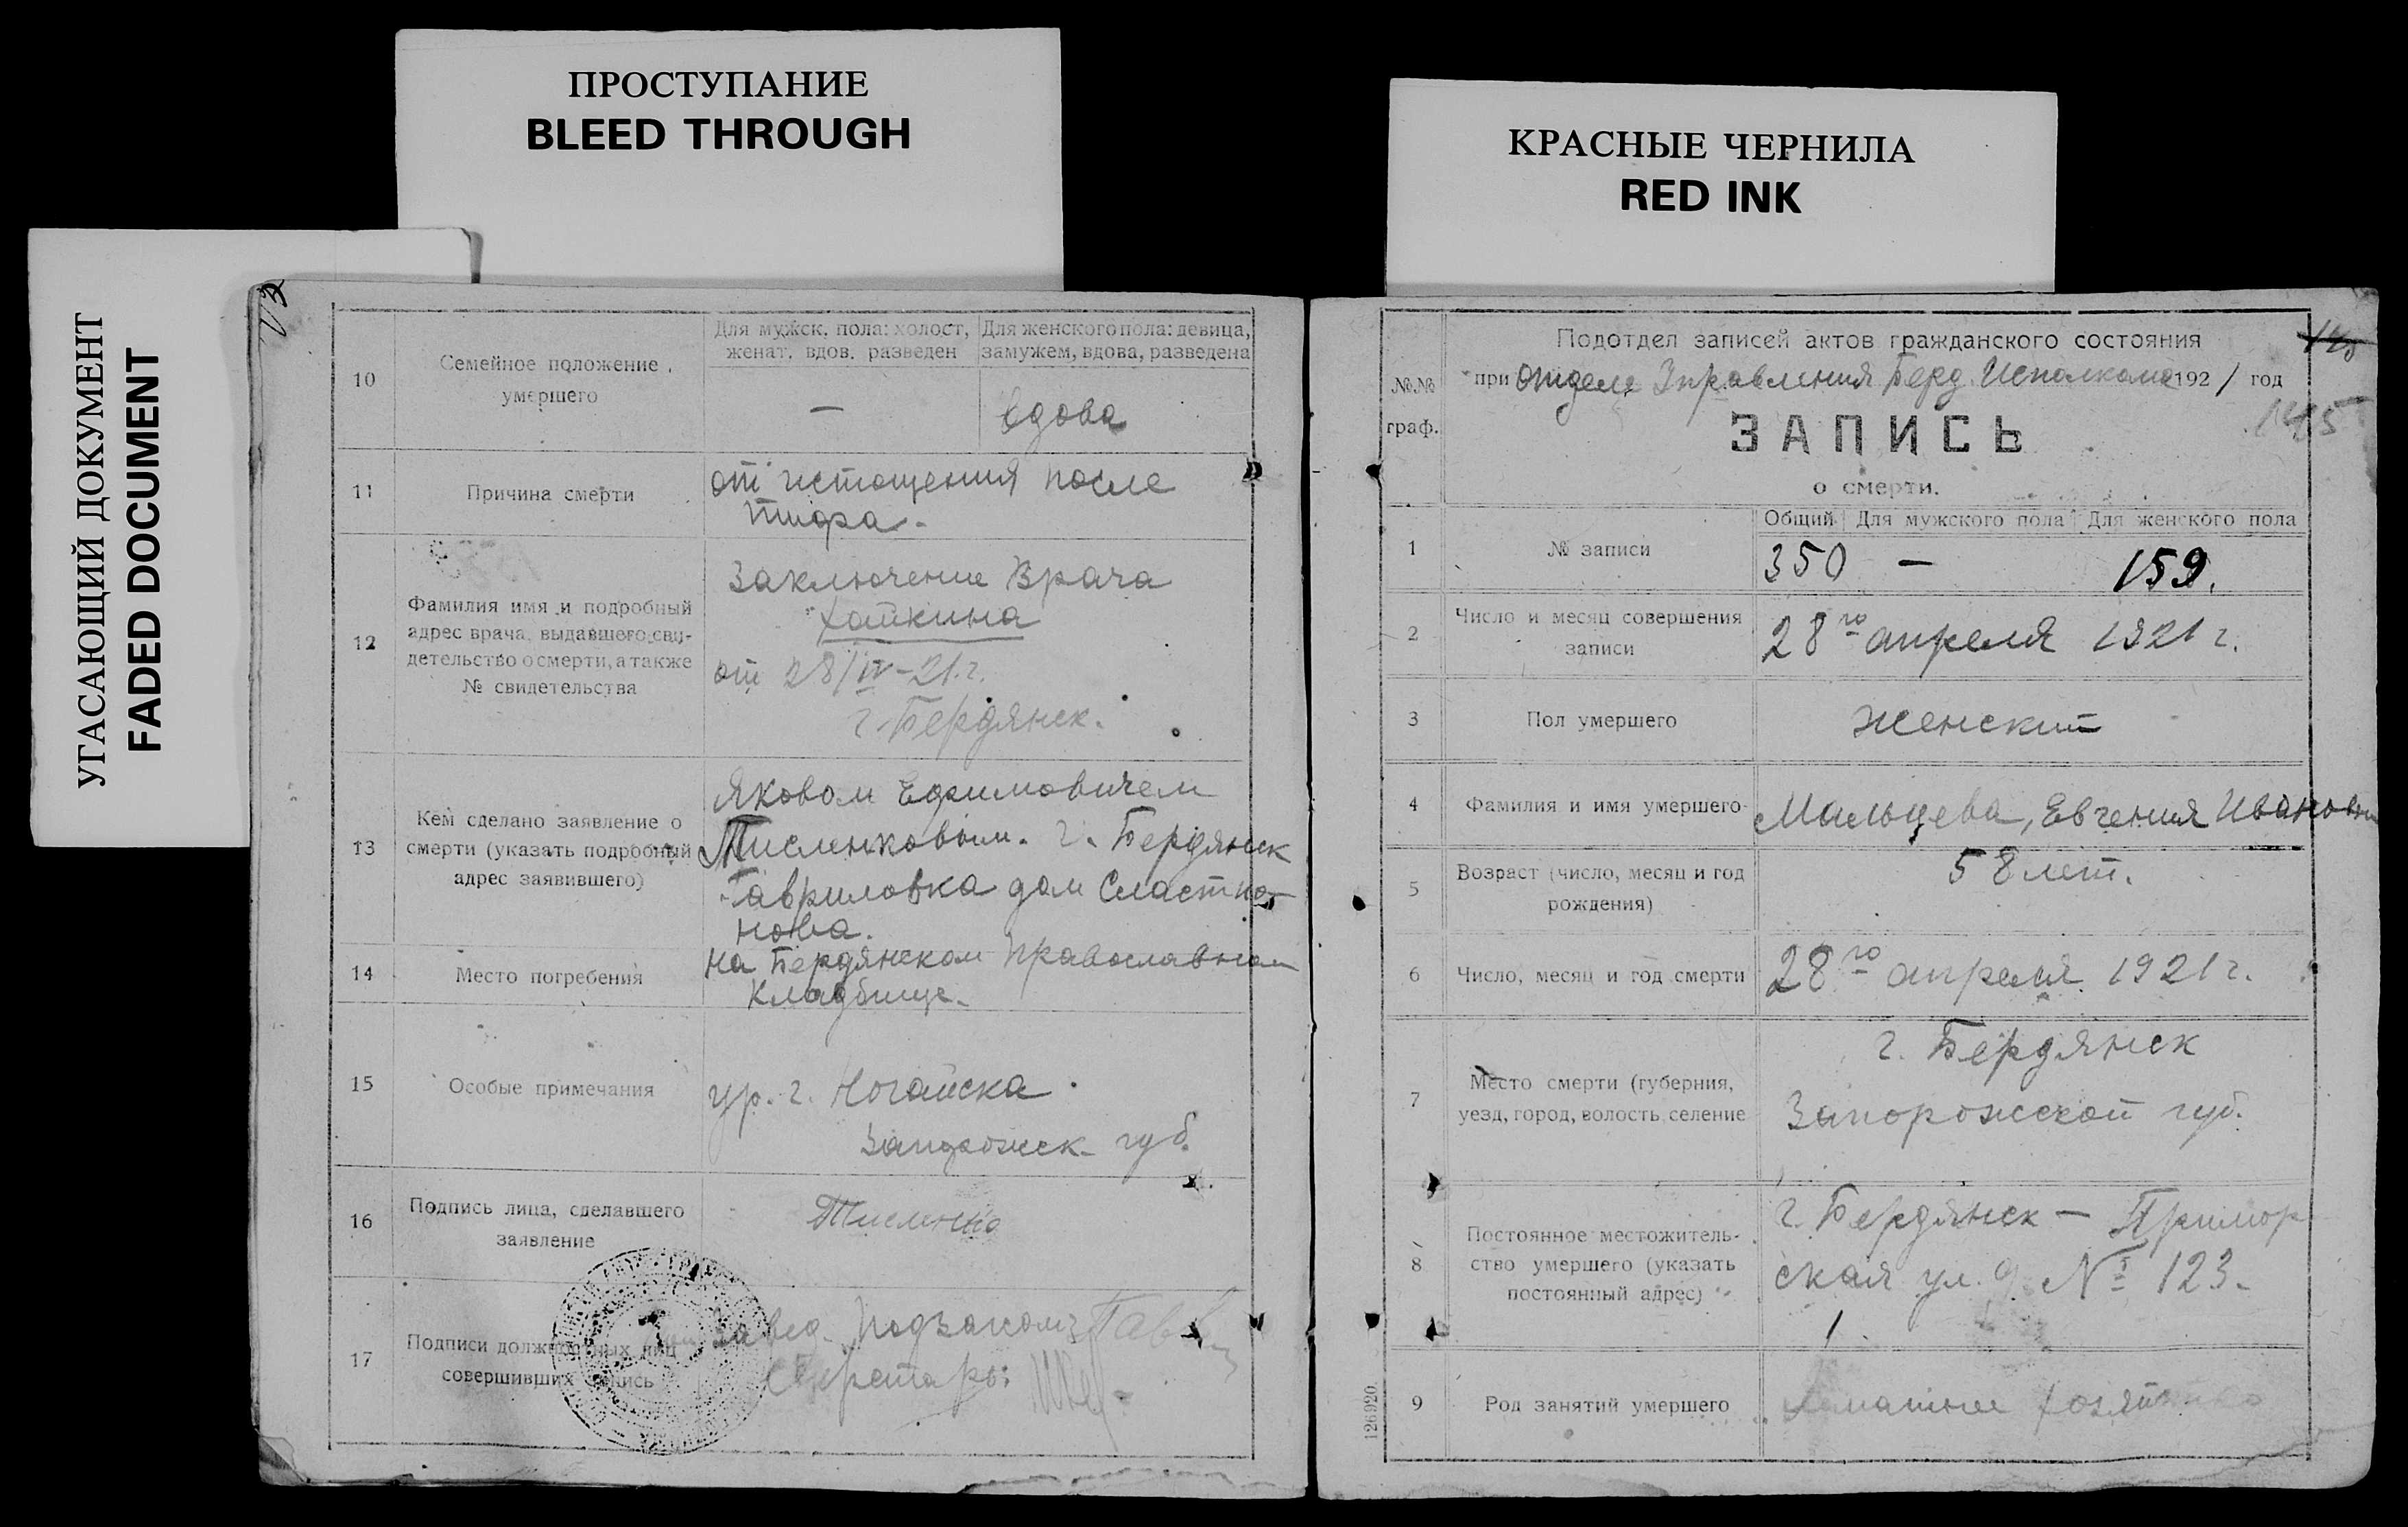 ПРОСТУПАНИЕ
BLEED THROUGH
КРАСНЫЕ ЧЕРНИЛА
RED INK
УГАСАЮЩИЙ ДОКУМЕНТ
FADED DOCUMENT
10
Семейное положение
умершего
Для мужск. пола: холост,
женат, вдов. разведен
Для женского пола: девица,
замужем, вдова, разведена
—
вдова
11
Причина смерти
от истощения после
тифа.
12
Фамилия имя и подробный
адрес врача, выдавшего сви-
детельство о смерти, а также
№ свидетельства
Заключение Врача
Хайкина
от 28/IV-21.г.
г. Бердянск.
13
Кем сделано заявление о
смерти (указать подробный
адрес заявившего)
Яковом Ефимовичем
Тисленковым. г. Бердянск
Гавриловка дом Сластно-
нова.
14
Место погребения
на Бердянском Православном
кладбище.
15
Особые примечания
ур. г. Ногайска.
Запорожск. губ.
16
Подпись лица, сделавшего
заявление
Тисленко
17
Подписи должностных лиц
совершивших запись
Завед. Подзагсом
Секретарь:
№№
граф.
Подотдел записей актов гражданского состояния
при Отделе Управления Берд. Исполкома 1921 год
145
ЗАПИСЬ
о смерти.
1
№ записи
Общий Для мужского пола Для женского пола
350 — 159.
2
Число и месяц совершения
записи
28го апреля 1921 г.
3
Пол умершего
женский
4
Фамилия и имя умершего
Мальцева, Евгения Ивановн
5
Возраст (число, месяц и год
рождения)
58 лет.
6
Число, месяц и год смерти
28го апреля 1921 г.
7
Место смерти (губерния,
уезд, город, волость, селение
г. Бердянск
Запорожской губ.
8
Постоянное местожитель-
ство умершего (указать
постоянный адрес)
г. Бердянск — Примор
ская ул. д. № 123.
1
9
Род занятий умершего
домашнее хозяйство
126020